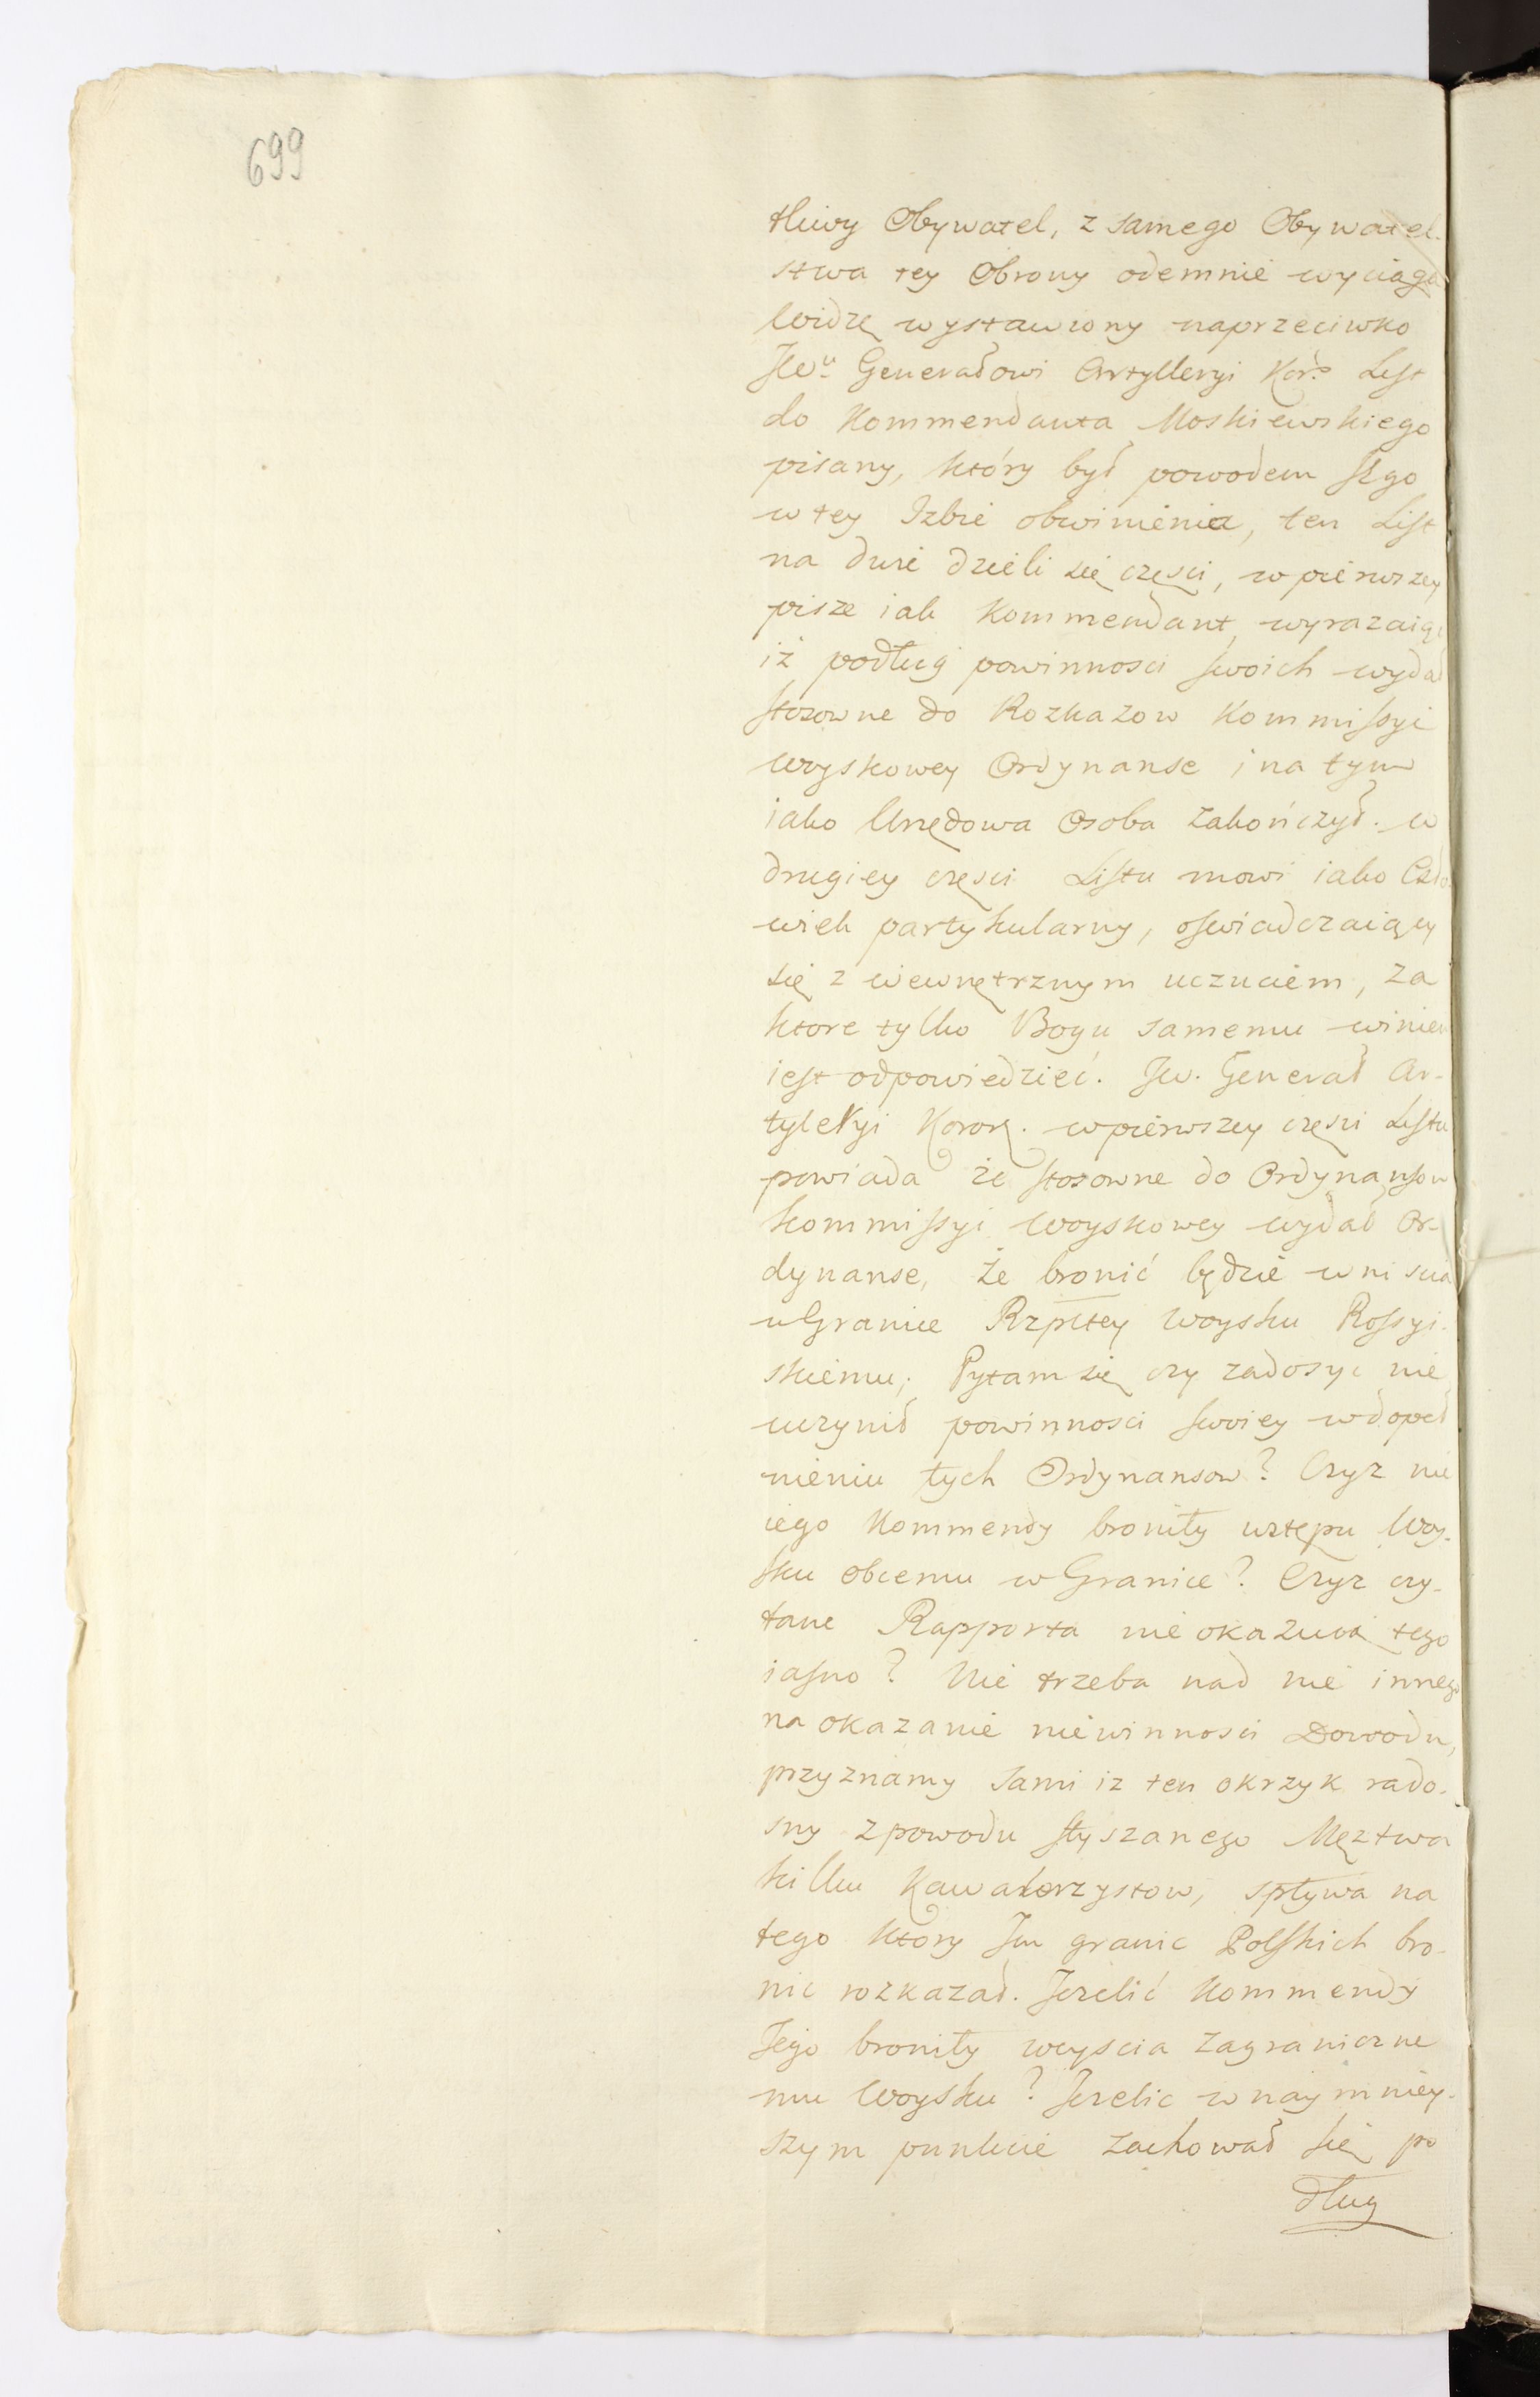 699
tliwy Obywatel, z samego Obywatel-
stwa tey Obrony odemnie wyciąga
Widzę wystawiony naprzeciwko
JWu Generałowi Artylleryi Kor: List
do Kommendanta Moskiewskiego
pisany, który był powodem Jego
w tey Izbie obwinienia, ten List
na dwie dzieli się częsci, w pierwszey
pisze iak Kommendant, wyrazaiąc
iż podług powinnosci swoich wydał
stosowne do Rozkazow Kommissyi
Woyskowey Ordynanse i na tym
iako Urzędowa Osoba zakończył. w
drugiey częsci Listu mowi iako Czło-
wiek partykularny, oswiadczaiący
się z wewnętrznym uczuciem, za
ktore tylko Bogu samemu winien
iest odpowiedzieć. JW. Generał Ar-
tyleryi Koron. w pierwszey częsci Listu
powiada że stosowne do Ordynansow
Kommissyi Woyskowey wydał Or-
dynanse, że bronić będzie wniscia
w Granice Rzpltey Woysku Rossyi-
skiemu; Pytam się czy zadosyc nie
uczynił powinnosci swoiey w dopeł
nieniu tych Ordynansow? Czyz nie
iego Kommendy broniły wstępu Woy-
sku obcemu w Granice? Czyz czy-
tane Rapporta nie okazuią tego
iasno? Nie trzeba nad nie innego
na okazanie niewinnosci Dowodu,
przyznamy sami iz ten okrzyk rado-
sny z powodu słyszanego Męztwa
kilku Kawalerzystow, spływa na
tego ktory Im granic Polskich bro-
nic rozkazał. Jezelić Kommendy
Jego broniły weyscia zagraniczne
mu Woysku? Jezelic w naymniey-
szym punkcie zachował się po
dług